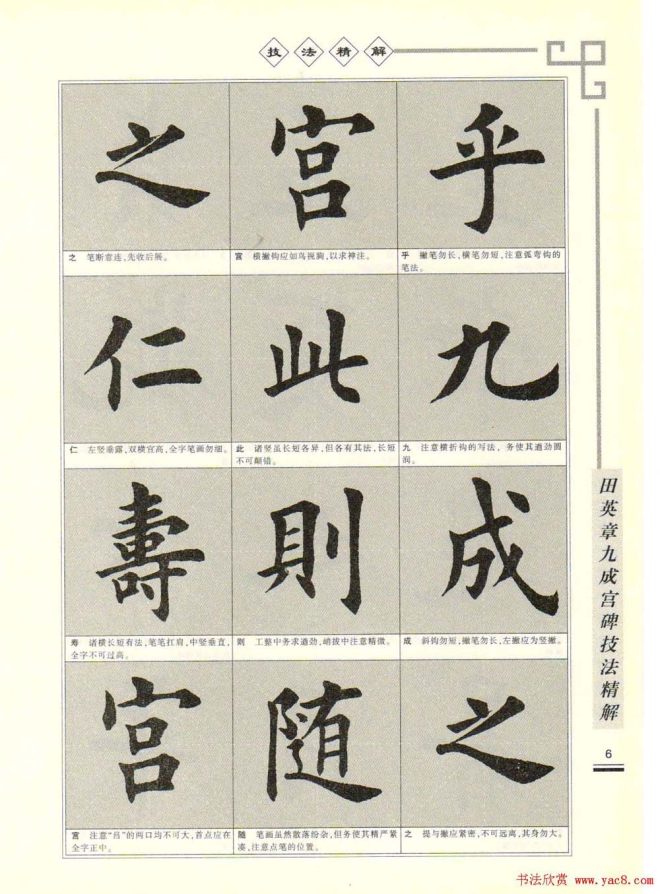 技法精解
之 宫 乎
之 笔断意连,先收后展。
宫 横撇钩应如鸟视胸,以求神注。
乎 撇笔勿长,横笔勿短,注意弧弯钩的
笔法。
仁 此 九
仁 左竖垂露,双横宜高,全字笔画勿细。
此 诸竖虽长短各异,但各有其法,长短
不可颠错。
九 注意横折钩的写法,务使其遒劲圆
润。
壽 則 成
寿 诸横长短有法,笔笔扛肩,中竖垂直,
全字不可过高。
则 工整中务求遒劲,峭拔中注意精微。
成 斜钩勿短,撇笔勿长,左撇应为竖撇。
宫 随 之
宫 注意“吕”的两口均不可大,首点应在
全字正中。
随 笔画虽然散落纷杂,但务使其精严紧
凑,注意点笔的位置。
之 提与撇应紧密,不可远离,其身勿大。
田英章九成宫碑技法精解
6
书法欣赏 www.yac8.com